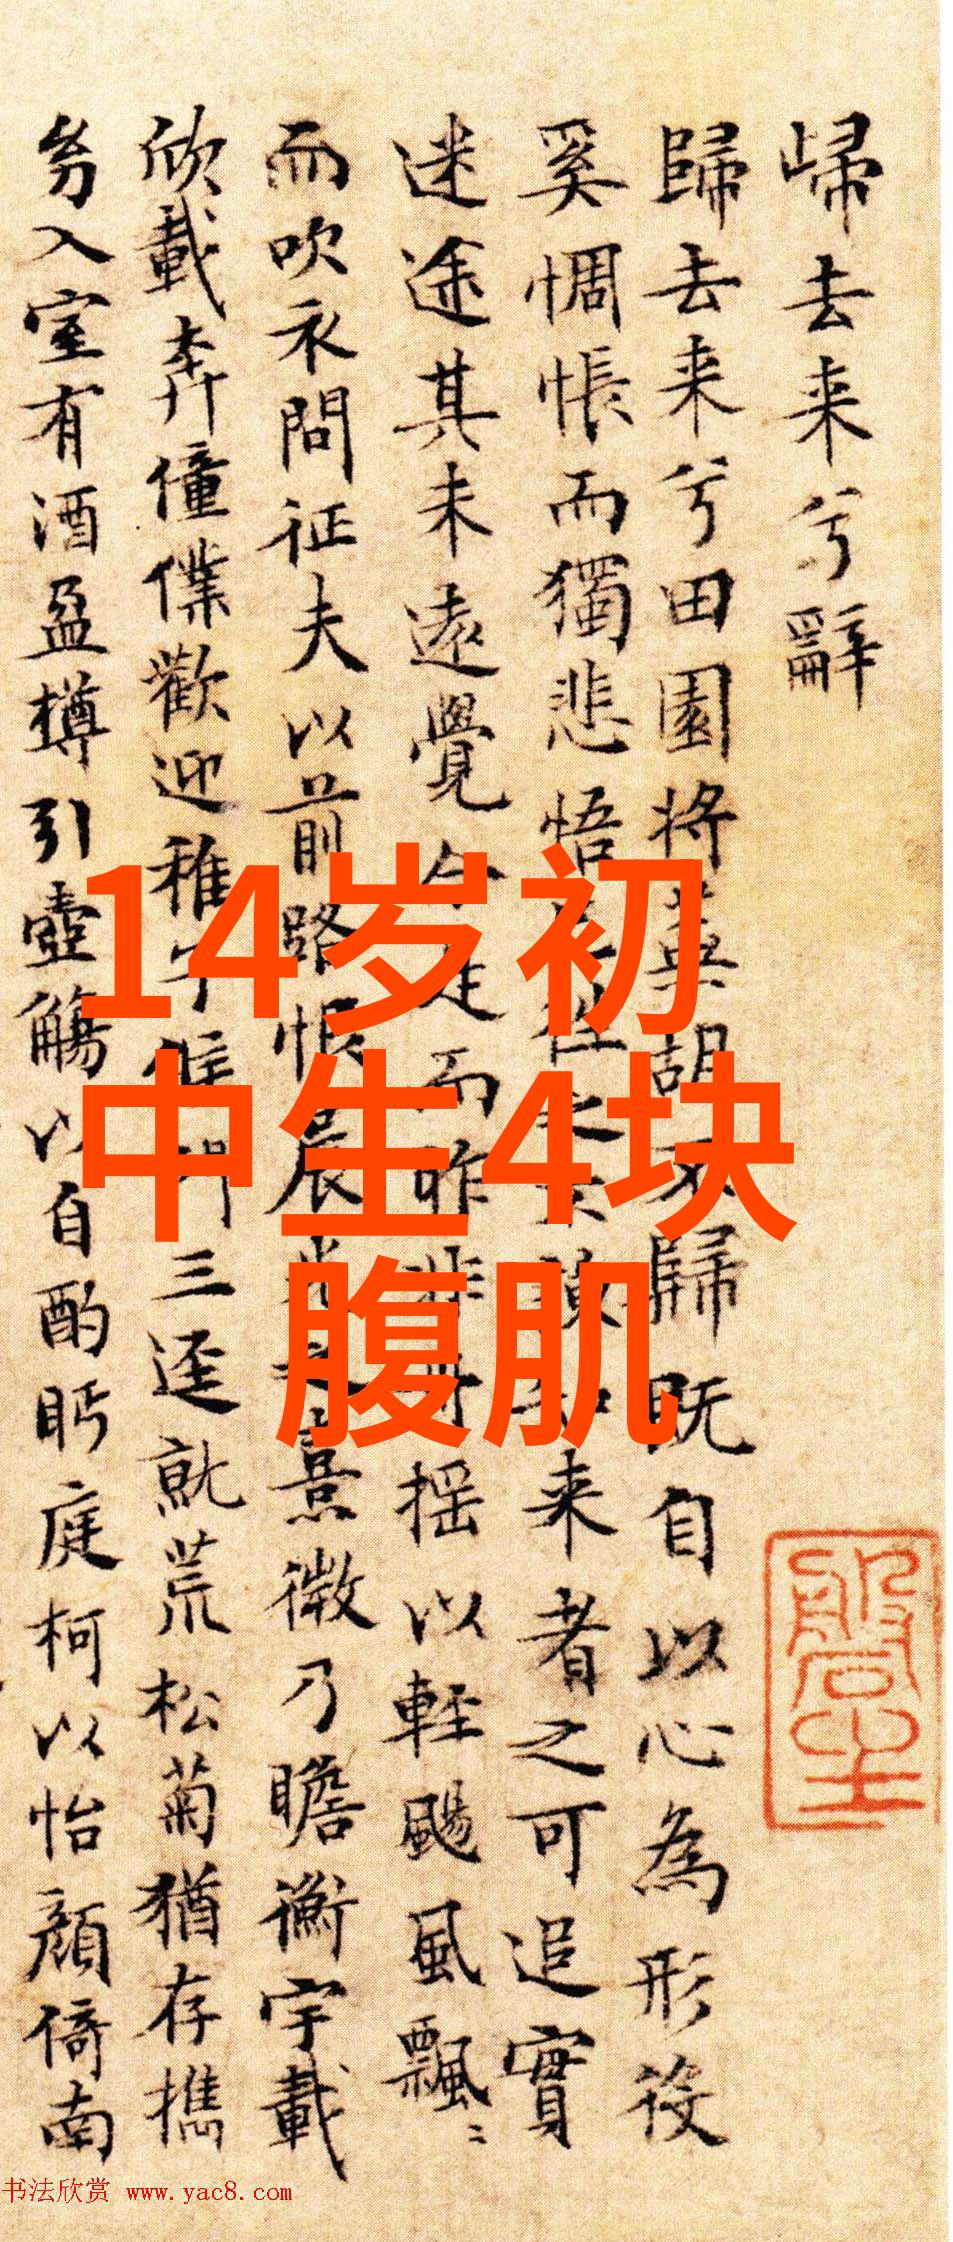 歸去来兮辭
歸去来兮田園将蕪胡不歸既自以心為形役
奚惆悵而獨悲悟已往之不諫知来者之可追實
迷途其未遠覺今是而昨非舟揺以輕颺風飄〻
而吹衣問征夫以前路恨晨光之熹微乃瞻衡宇載
欣載奔僮僕歡迎稚子候門三逕就荒松菊猶存攜
㓜入室有酒盈樽引壺觴以自酌眄庭柯以怡顔倚南
14岁初
中生4块
腹肌
书法欣赏 www.yac8.com